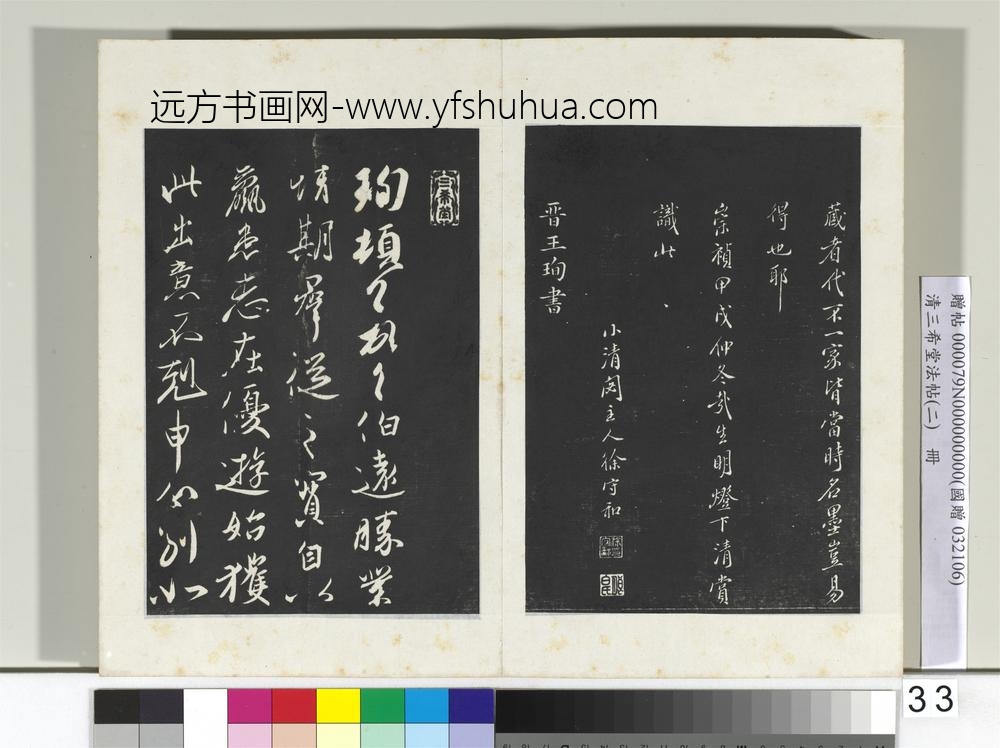 远方书画网-www.yfshuhua.com
藏者代不一家皆當時名墨豈易
得也耶
崇禎甲戌仲冬哉生明燈下清賞
識此
小清閟主人徐守和
晋王珣書
珣頓々首々伯遠勝業
情期羣從之寶自以
羸患志在優遊始獲
此出意不剋申分別如
贈帖 000079N000000000(國贈 032106)
清三希堂法帖(二) 冊
33